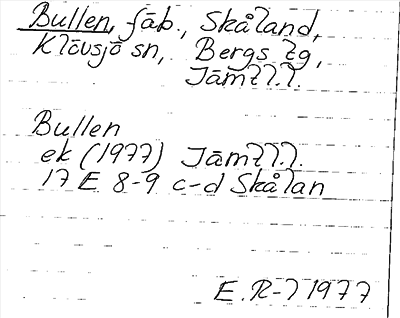 Bullen, fäb., Skåland,
Klövsjö sn, Bergs tg,
Jämtl.l.
Bullen
ek (1977) Jämtl.l.
17 E 8-9 c-d Skålan
E. R-l 1977